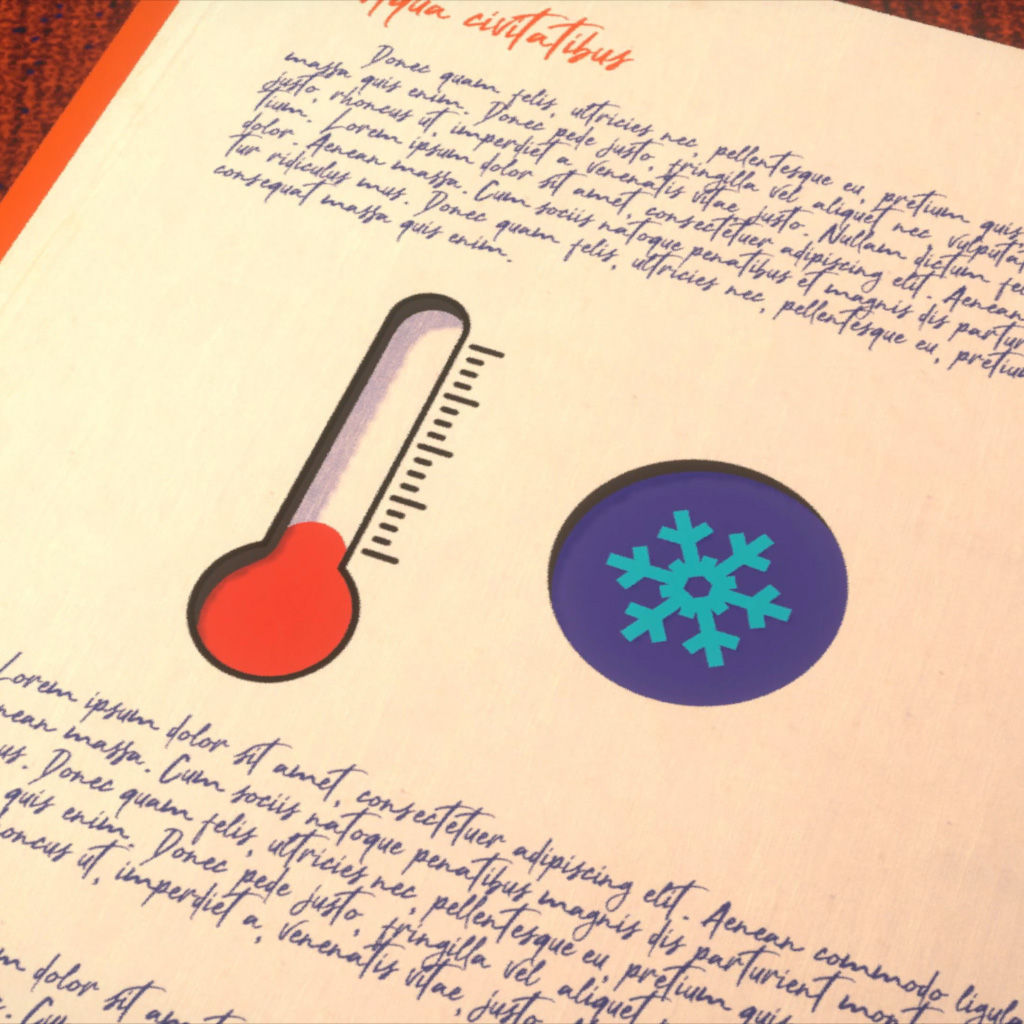 civitatibus
Donec quam felis, ultricies nec, pellentesque eu, pretium quis
massa quis enim. Donec pede justo, fringilla vel aliquet nec, vulputat
justo, rhoncus ut, imperdiet a, venenatis vitae, justo. Nullam dictum fel
tium. Lorem ipsum dolor sit amet, consectetuer adipiscing elit. Aenean
dolor. Aenean massa. Cum sociis natoque penatibus et magnis dis partur
tur ridiculus mus. Donec quam felis, ultricies nec, pellentesque eu, pretium
consequat massa quis enim.
Lorem ipsum dolor sit amet, consectetuer adipiscing elit. Aenean commodo ligula
nean massa. Cum sociis natoque penatibus magnis dis parturient mon
us. Donec quam felis, ultricies nec, pellentesque eu, pretium quis
quis enim. Donec pede justo, fringilla vel aliquet
oncus ut, imperdiet a, venenatis vitae, justo
m dolor sit amet